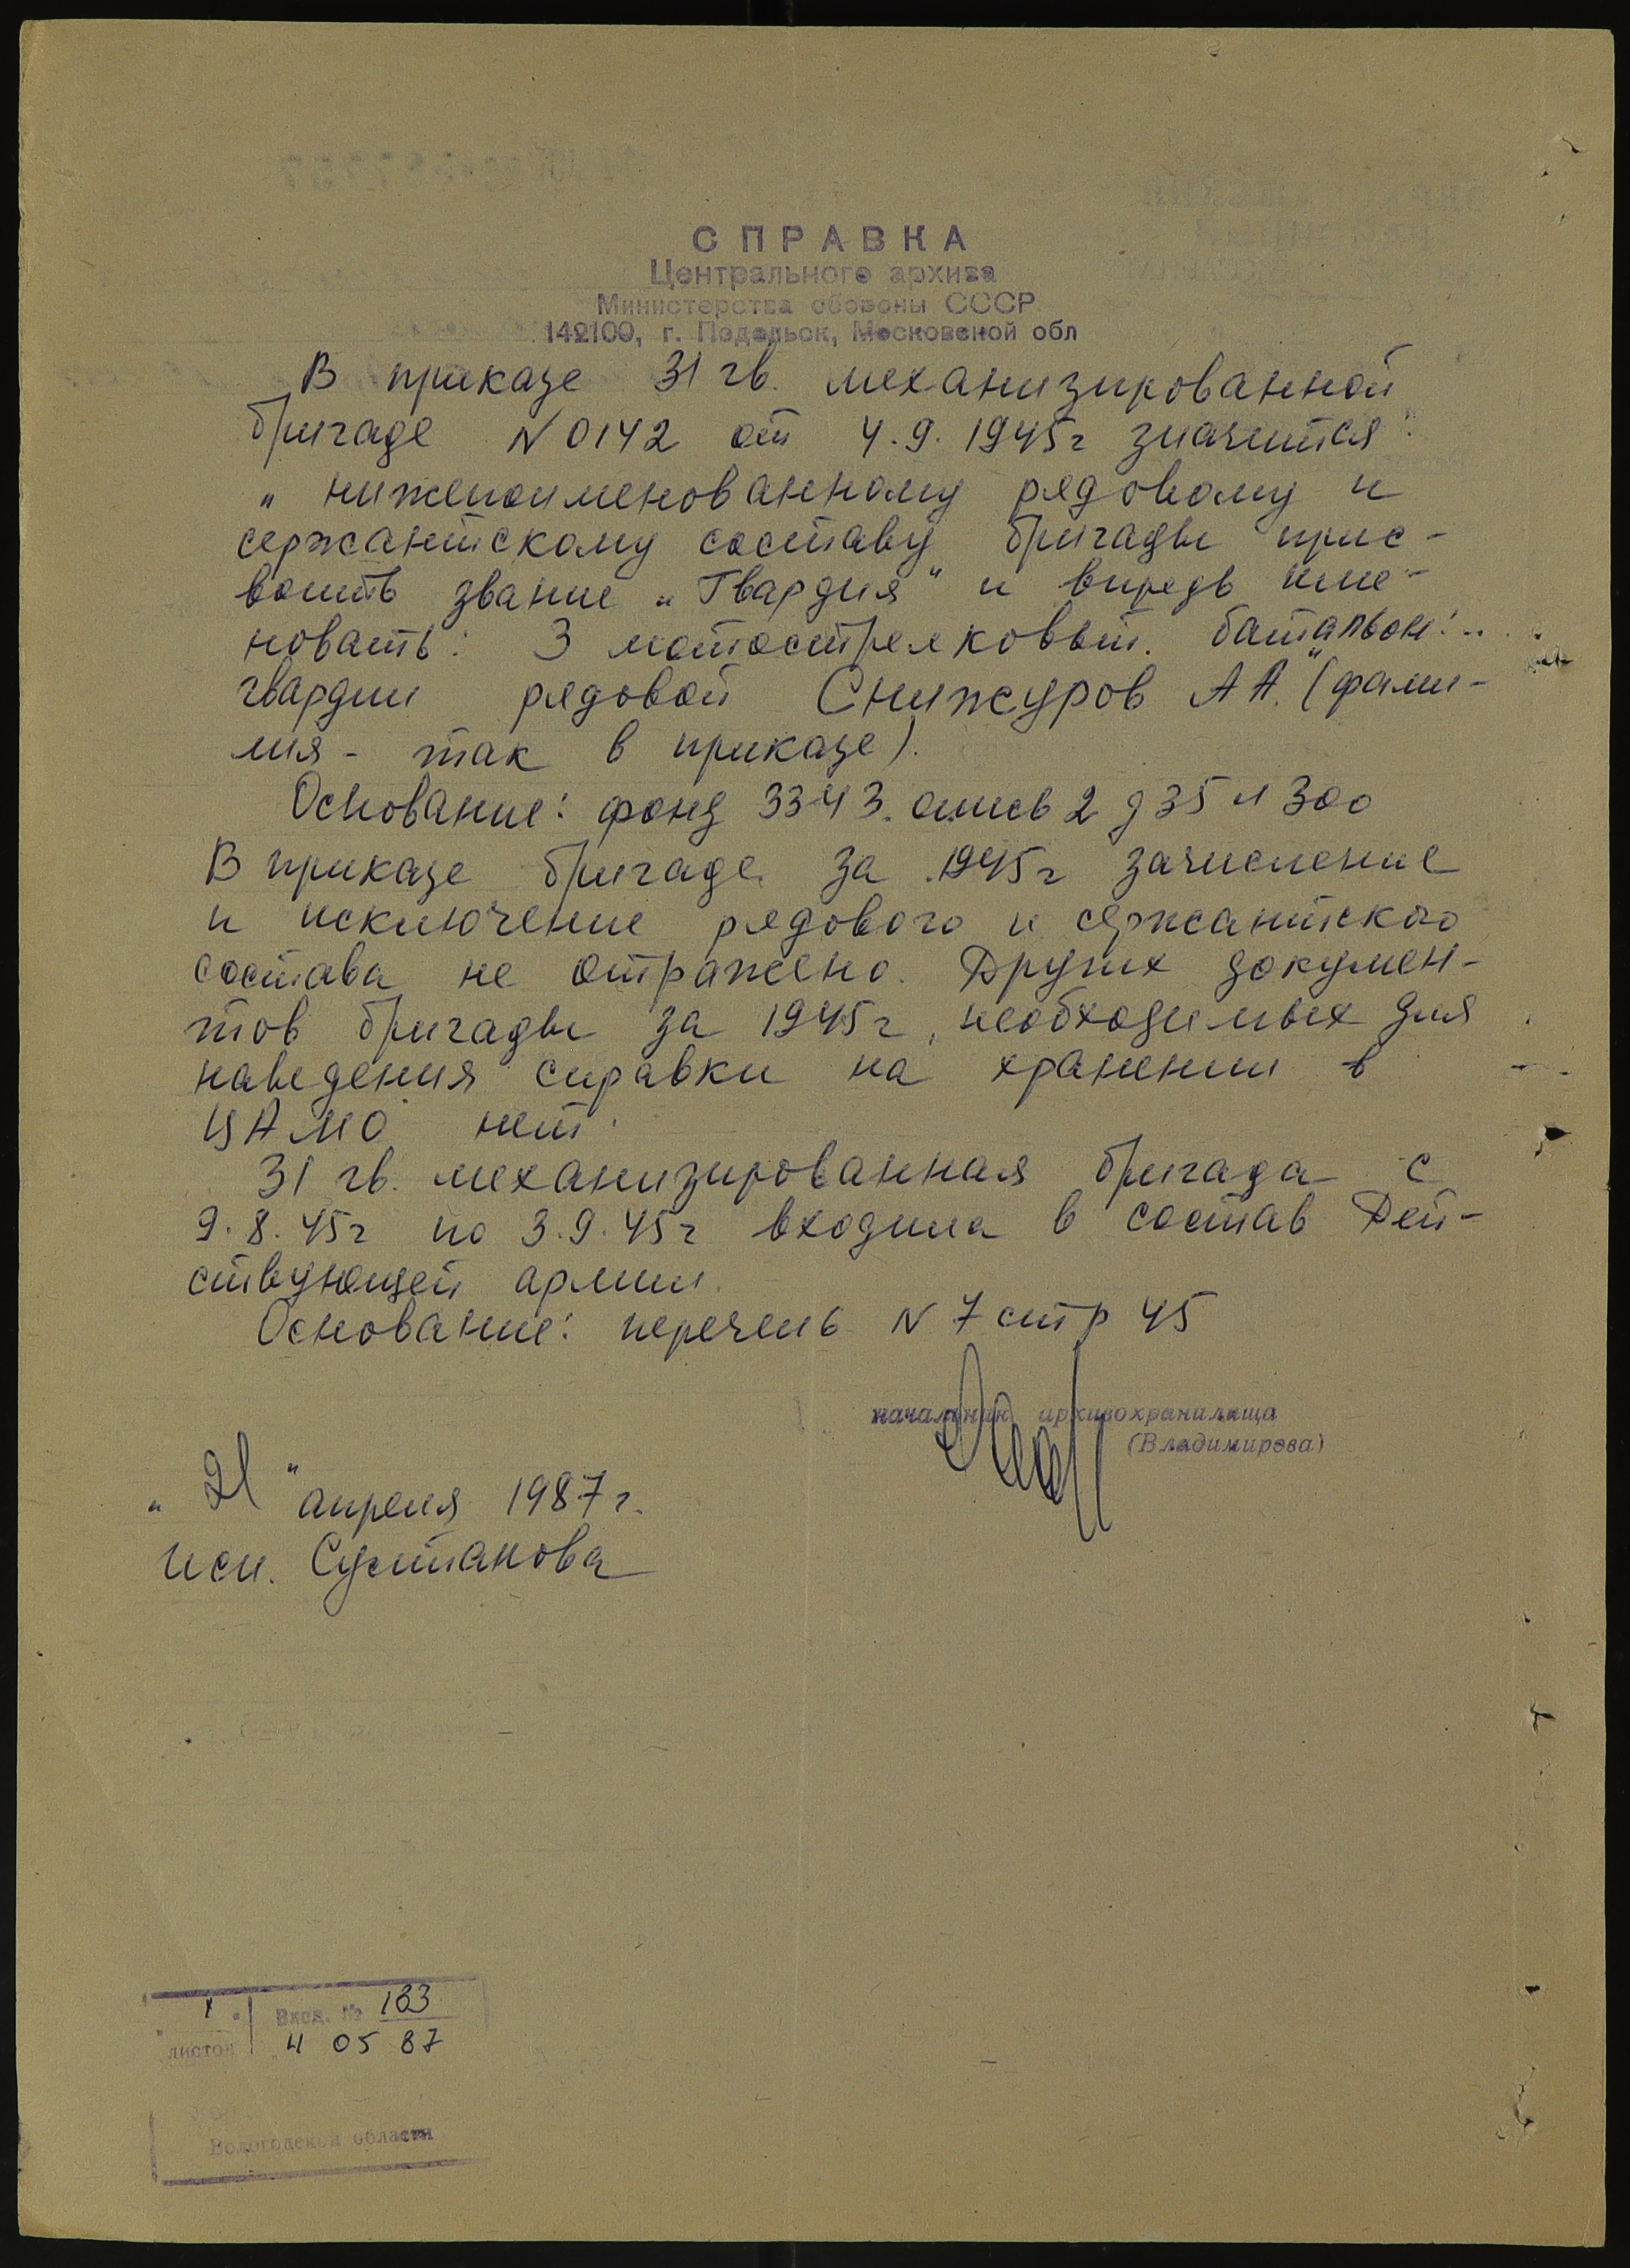 СПРАВКА
Центрального архива
Министерства обороны СССР
142100, г. Подольск, Московской обл
В приказе 31 гв. механизированной
бригаде N 0142 от 4.9.1945г значится:
„ нижепоименованному рядовому и
сержантскому составу бригады прис-
воить звание „Гвардия“ и впредь име-
новать: 3 мотострелковый. батальон: ..
гвардии рядовой Снижуров А А.“ (фами-
лия - так в приказе).
Основание: фонд 3343. опись 2 д 35 л 300
В приказе бригаде за 1945г зачисление
и исключение рядового и сержантского
состава не отражено. Других докумен-
тов бригады за 1945г, необходимых для
наведения справки на хранении в
ЦАМО нет.
31 гв. механизированная бригада с
9.8.45г по 3.9.45г входила в состав Дей-
ствующей армии.
Основание: перечень N 7 стр 45
начальник архивохранилища
(Владимирова)
„ 21 “ апреля 1987г.
исп. Султанова
1 Вход. № 183
листов 4 05 87
Вологодской области